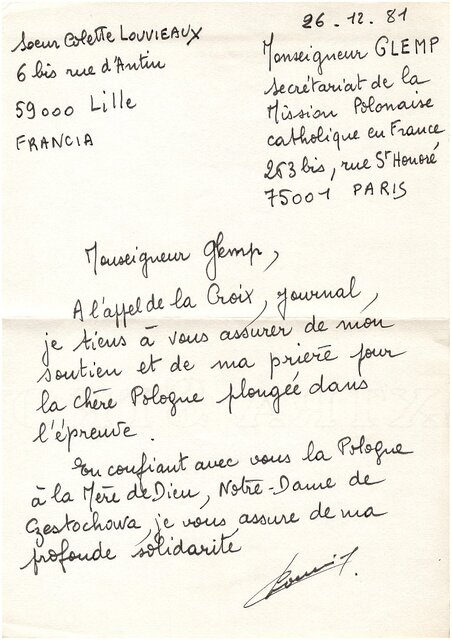 26.12.81
Soeur Colette LOUVIEAUX
6 bis rue d'Antin
59000 Lille
FRANCIA
Monseigneur GLEMP
secrétariat de la
Mission Polonaise
catholique en France
263 bis, rue St Honoré
75001 PARIS
Monseigneur Glemp,
A l'appel de la Croix, journal,
je tiens à vous assurer de mon
soutien et de ma prière pour
la chère Pologne plongée dans
l'épreuve.
En confiant avec vous la Pologne
à la Mère de Dieu, Notre-Dame de
Czestochowa, je vous assure de ma
profonde solidarité